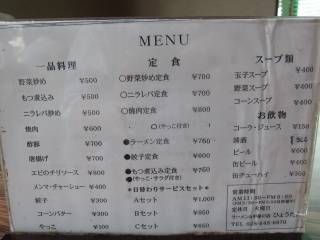 MENU
一品料理
野菜炒め ¥500
もつ煮込み ¥500
ニラレバ炒め ¥500
焼肉 ¥600
酢豚 ¥700
唐揚げ ¥700
エビのチリソース ¥800
メンマ・チャーシュー ¥400
餃子 ¥300
コーンバター ¥300
やっこ ¥450
定食
○野菜炒め定食 ¥700
○ニラレバ定食 ¥700
○焼肉定食 ¥800
○(やっこ付き)
●ラーメン定食 ¥760
●餃子定食 ¥600
●もつ煮込み定食 ¥750
●(やっこ・サラダ付き)
*日替わりサービスセット*
Aセット ¥1,000
Bセット ¥850
Cセット ¥850
スープ類
玉子スープ ¥400
野菜スープ ¥400
コーンスープ ¥400
お飲物
コーラ・ジュース ¥150
清酒
ビール ¥600
缶ビール ¥400
缶チューハイ ¥350
営業時間
定休日 火曜日
ひょうた